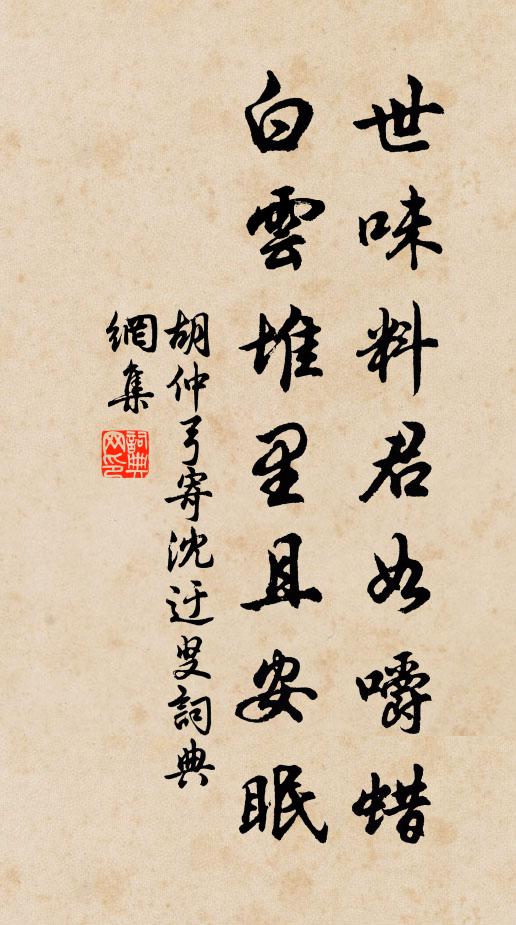 世味料君如嚼蜡
白雲堆里且安眠
胡仲弓寄沈迂叟詞典
網集
詞典
网印